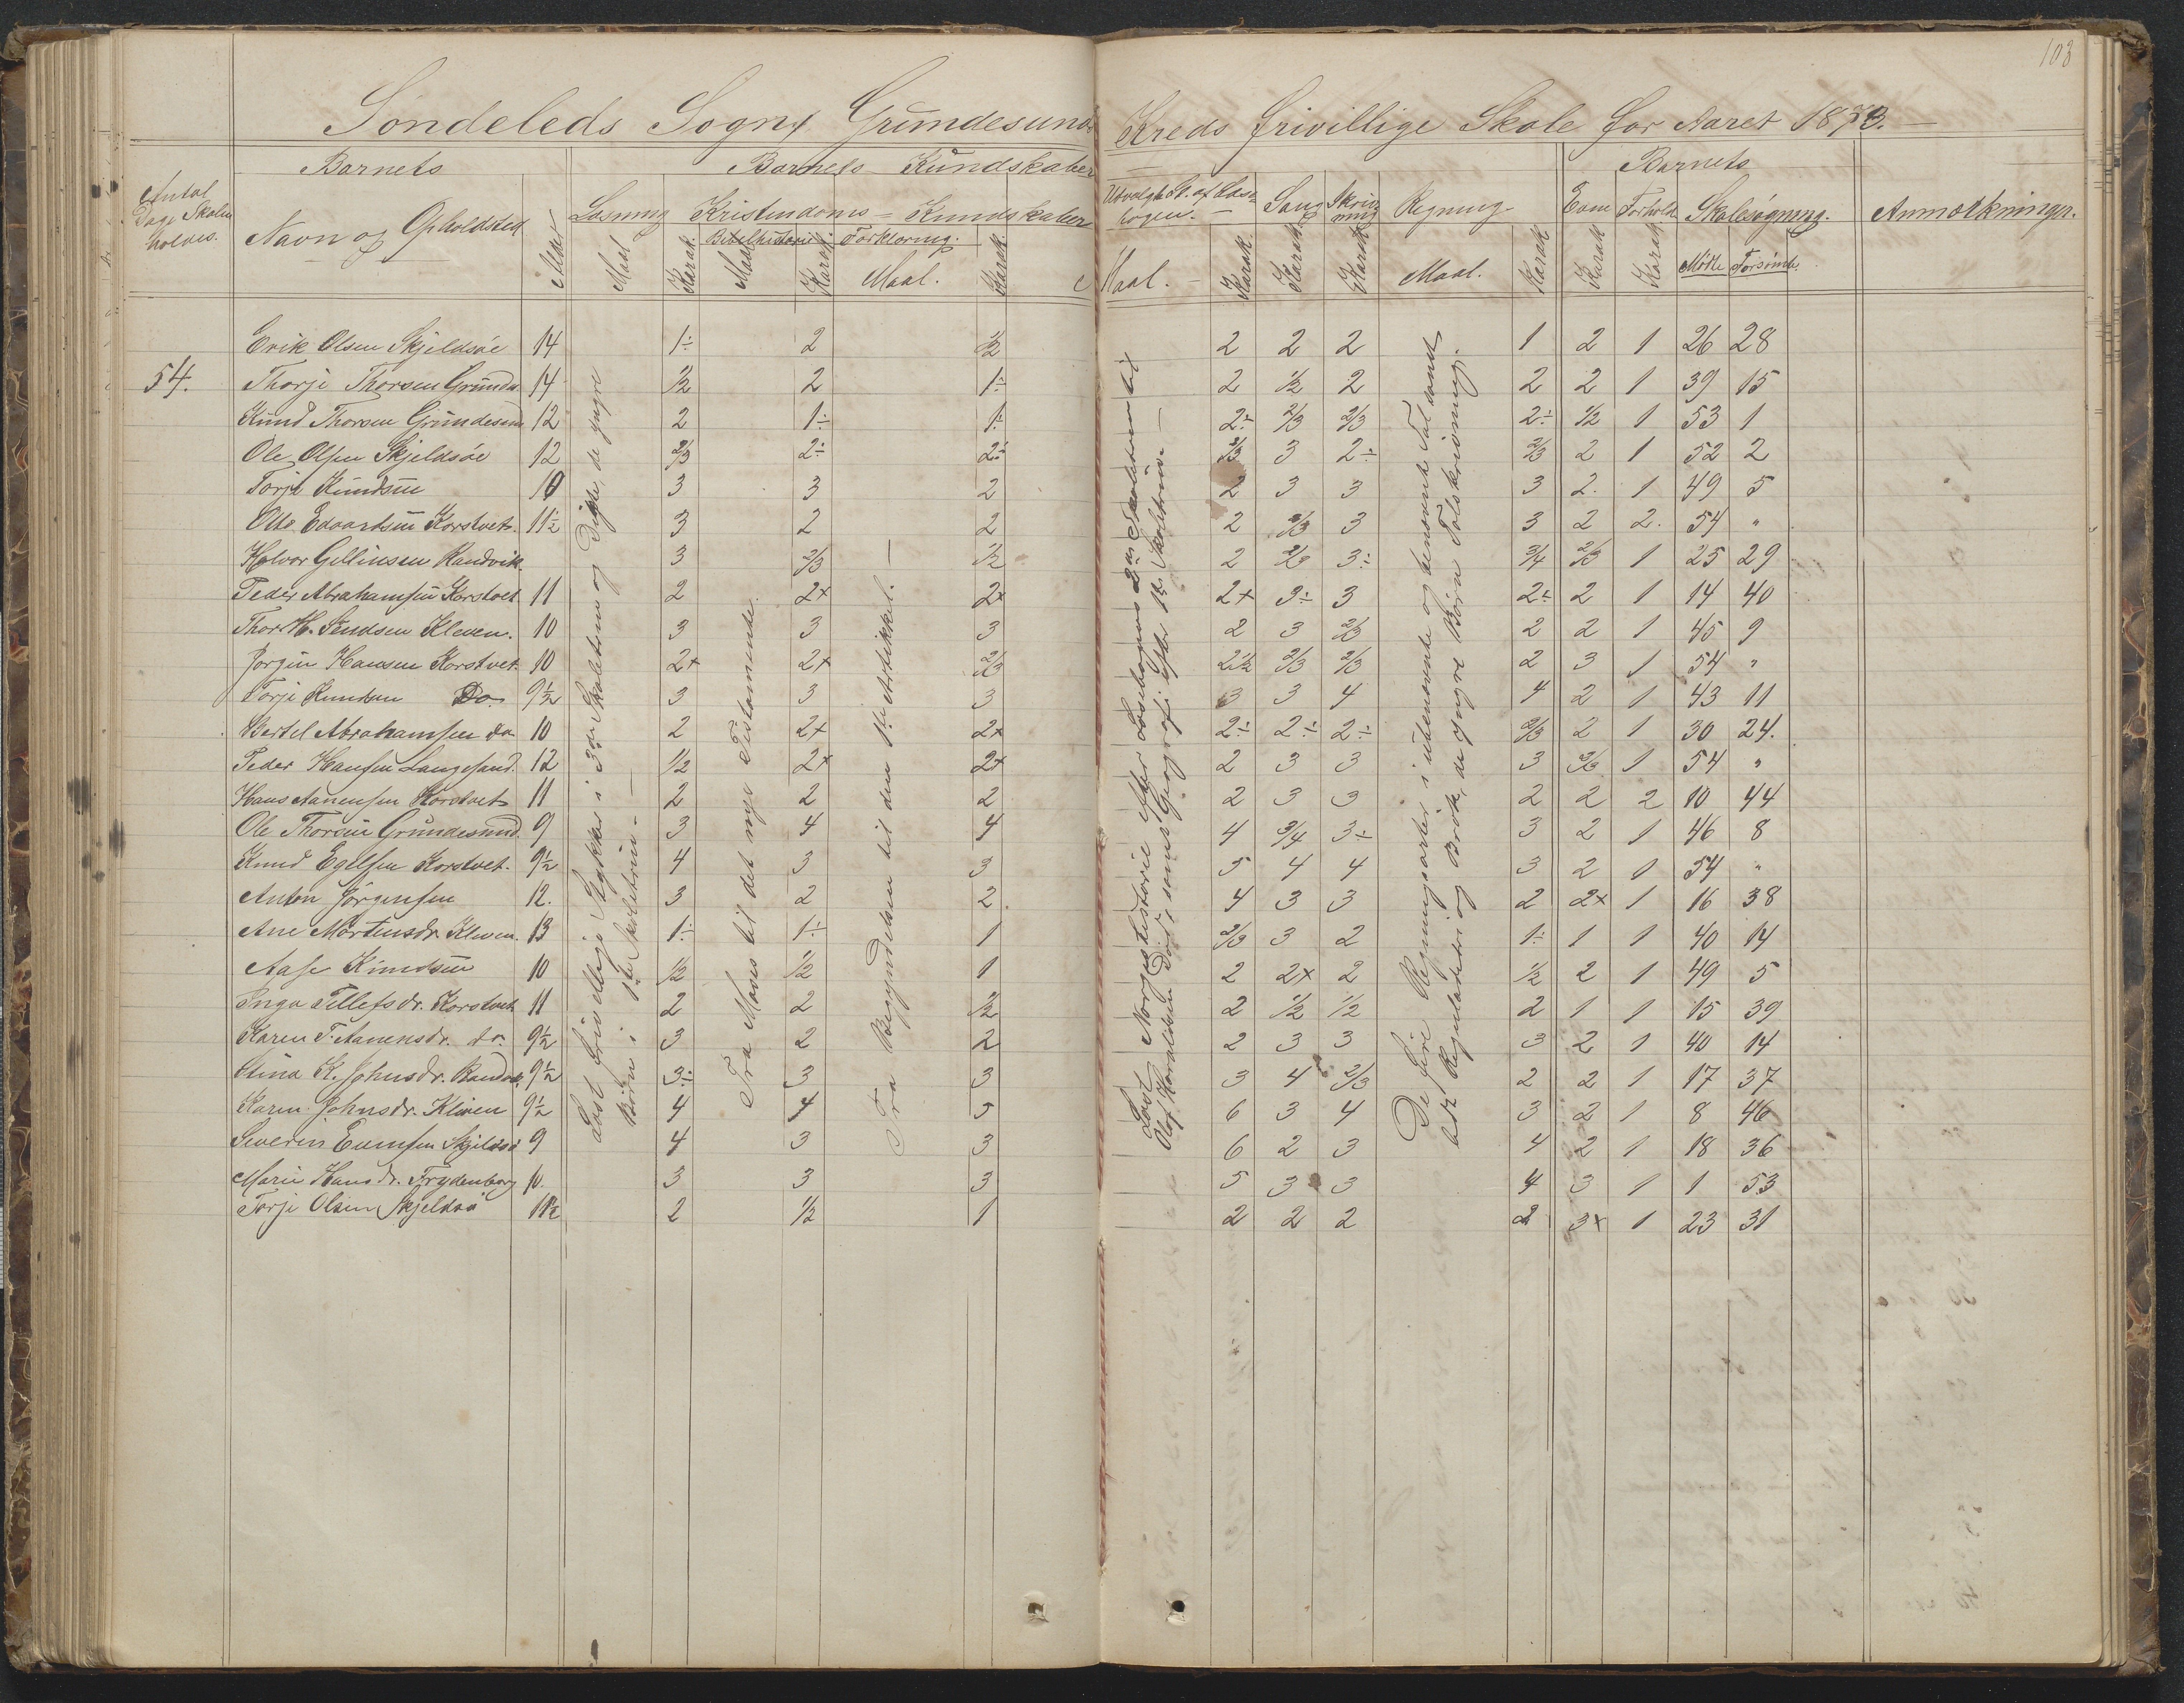 103
Søndeleds Sogns Grundesunds Kreds frivillige Skole for Aaret 1873.
Antal Dage Skolen holdes.
Barnets
Barnets Kundskaber
Barnets
Navn og Opholdsted
Alder
Læsning
Kristendoms-Kundskaber
Udvalgte St. af Læsebogen.
Sang
Skrivning
Regning
Evne
Forhold
Skolesøgning.
Anmærkninger.
Bibelhistorie
Forklaring.
Maal
Karak.
Maal
Karak.
Maal.
Karak.
Maal.
Karak.
Karak.
Karak.
Maal.
Karak
Karak
Karak.
Mødte
Forsømte.
54.
Erik Olsen Skjeldsøe 14 1÷ 2 1/2 2 2 2 1 2 1 26 28
Thorje Thorsen Grunde 14 1/2 2 1÷ 2 1/2 2 2 2 1 39 15
Knud Thorsen Grundesund 12 2 1÷ 1÷ 2÷ 2/3 2/3 2÷ 1/2 1 53 1
Ole Olsen Skjeldsøe 12 2/3 2÷ 2÷ 2/3 3 2÷ 2/3 2 1 52 2
Torje Knudsen 10 3 3 2 2 3 3 3 2. 1 49 5
Otto Edvardsen Korstvet. 11½ 3 2 2 2 2/3 3 3 2 2. 54 "
Halvor Gellinsen Randvik. 3 2/3 1/2 2 2/3 3÷ 3/4 2/3 1 25 29
Peder Abrahamsen Korstvet 11 2 2+ 2+ 2+ 3÷ 3 2÷ 2 1 14 40
Thor H. Svendsen Kleven. 10 3 3 3 2 3 2/3 2 2 1 45 9
Jørgen Hansen Korstvet 10 2+ 2+ 2/3 2½ 2/3 2/3 2 3 1 54 "
Torje Knudsen Do. 9½ 3 3 3 3 3 4 4 2 1 43 11
Bertel Abrahamsen do 10 2 2+ 2+ 2÷ 2÷ 2÷ 2/3 2 1 30 24.
Peder Hansen Langesand. 12 1/2 2+ 2+ 2 3 3 3 2/3 1 54 "
Hans Aanensen Korstvet 11 2 2 2 2 3 3 2 2 2 10 44
Ole Thorsen Grundesund. 9 3 4 4 4 3/4 3÷ 3 2 1 46 8
Knud Egelsen Korstvet. 9½ 4 3 3 5 4 4 3 2 1 54 "
Anton Jørgensen 12. 3 2 2 4 3 3 2 2+ 1 16 38
Ane Mortensdr. Kleven. 13 1÷ 1÷ 1 2/3 3 2 1÷ 1 1 40 14
Aase Knudsen 10 1/2 1/2 1 2 2+ 2 1/2 2 1 49 5
Inga Tellefsdr. Korstvet 11 2 2 1/2 2 1/2 1/2 2 1 1 15 39
Karen T. Aanensdr. do. 9½ 3 2 2 2 3 3 3 2 1 40 14
Stina K. Johnsdr. Randvik. 9½ 3÷ 3 3 3 4 2/3 2 2 1 17 37
Karen Johnsdr. Kleven 9½ 4 4 5 6 3 4 3 2 1 8 46
Severin Evensen Skjeldsø 9 4 3 3 6 2 3 4 2 1 18 36
Marie Hansdr. Frydenborg 10. 3 3 3 5 3 3 4 3 1 1 53
Torje Olsen Skjeldsø 11½ 2 1/2 1 2 2 2 2 3+ 1 23 31
Læst frivillige Stykker i 3die Skoletrin og Digte, de yngre
Børn i 1ste Skoletrin. —
Fra Moses til det nye Testamente.
Fra Begyndelsen til den 1ste Artikkel. —
Læst Norgeshistorie efter Læsebogens 2det Skoletrin til
Olaf Haraldsen Død, samt Geografi efter 1ste Skoletrin. —
De fire Regningsarter i ubenævnte og benævnte Tal samt
og Brøk, de yngre Børn Talskrivning.